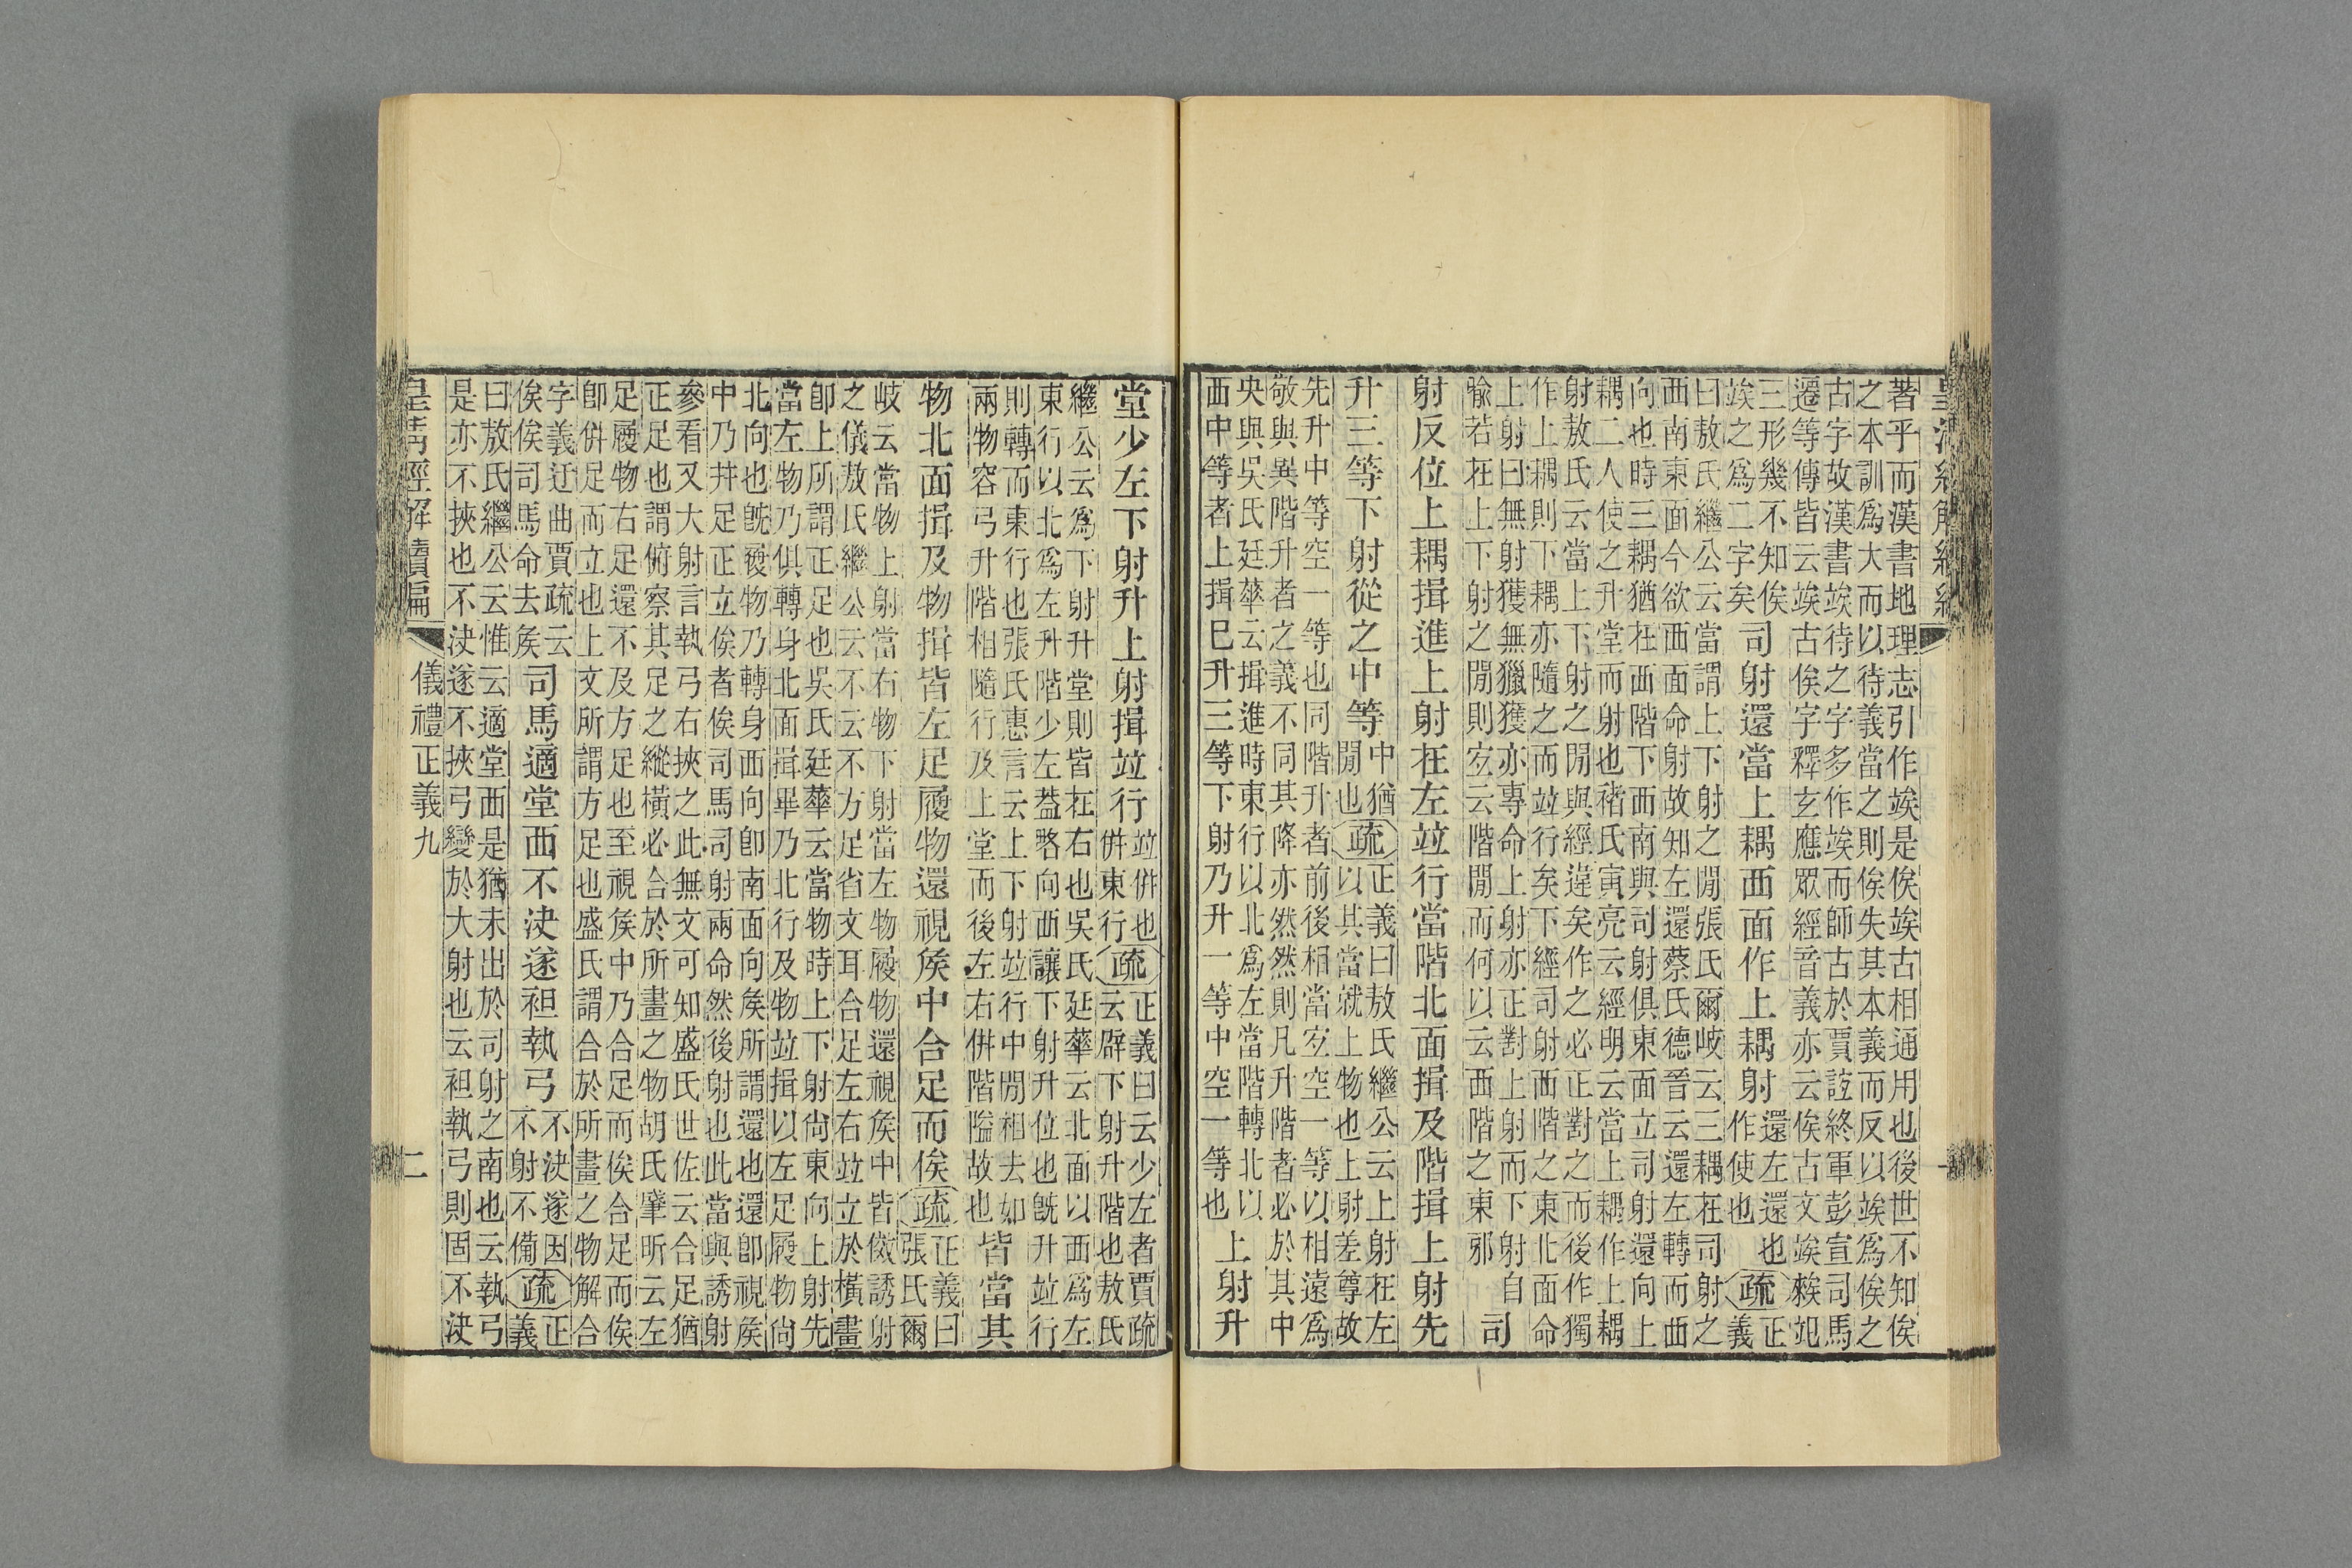 著乎而漢書地理志引作竢是俟竢古相通用也後世不知俟
之本訓爲大而以待義當之則俟失其本義而反以竢爲俟之
古字故漢書竢待之字多作竢而師古於賈誼終軍彭宣司馬
遷等傳皆云竢古俟字釋玄應眾經音義亦云俟古文竢䇃竾
三形幾不知俟
竢之爲二字矣
司射還當上耦西面作上耦射
還左還也
作使也
疏
正
義
曰敖氏繼公云當謂上下射之閒張氏爾岐云三耦在司射之
西南東面今欲西面命射故知左還蔡氏德晉云還左轉而西
向也時三耦猶在西階下西南與司射俱東面立司射還向上
耦二人使之升堂而射也褚氏寅亮云經明云當上耦作上耦
射敖氏云當上下射之閒與經違矣作之必正對之而後作獨
作上耦則下耦亦隨之而竝行矣下經司射西階之東北面命
上射曰無射獲無獵獲亦專命上射亦正對上射而下射自
喻若在上下射之閒則宜云階閒而何以云西階之東邪
司
射反位上耦揖進上射在左竝行當階北面揖及階揖上射先
升三等下射從之中等
中猶
閒也
疏
正義曰敖氏繼公云上射在左
以其當就上物也上射差尊故
先升中等空一等也同階升者前後相當宜空一等以相遠爲
敬與異階升者之義不同其降亦然然則凡升階者必於其中
央與吳氏廷華云揖進時東行以北爲左當階轉北以
西中等者上揖巳升三等下射乃升一等中空一等也
上射升
堂少左下射升上射揖竝行
竝併也
併東行
疏
正義曰云少左者賈疏
云辟下射升階也敖氏
繼公云爲下射升堂則皆在右也吳氏廷華云北面以西爲左
東行以北爲左升階少左葢略向西讓下射升位也旣升竝行
則轉而東行也張氏惠言云上下射竝行中閒相去如
兩物容弓升階相隨行及上堂而後左右併階隘故也
皆當其
物北面揖及物揖皆左足履物還視矦中合足而俟
疏
正義曰
張氏爾
岐云當物上射當右物下射當左物履物還視矦中皆倣誘射
之儀敖氏繼公云不云不方足省文耳合足左右竝立於橫畫
卽上所謂正足也吳氏廷華云當物時上下射尚東向上射先
當左物乃俱轉身北面揖畢乃北行及物竝揖以左足履物尚
北向也旣履物乃轉身西向卽南面向矦所謂還也還卽視矦
中乃并足正立俟者俟司馬司射兩命然後射也此當與誘射
參看又大射言執弓右挾之此無文可知盛氏世佐云合足猶
正足也謂俯察其足之縱橫必合於所畫之物胡氏肇昕云左
足履物右足還不及方足也至視矦中乃合足而俟合足而俟
卽併足而立也上文所謂方足也盛氏謂合於所畫之物解合
字義迂曲賈疏云
俟俟司馬命去矦
司馬適堂西不決遂袒執弓
不決遂因
不射不備
疏
正
義
曰敖氏繼公云惟云適堂西是猶未出於司射之南也云執弓
是亦不挾也不決遂不挾弓變於大射也云袒執弓則固不決
皇清經解續編
儀禮正義九
二